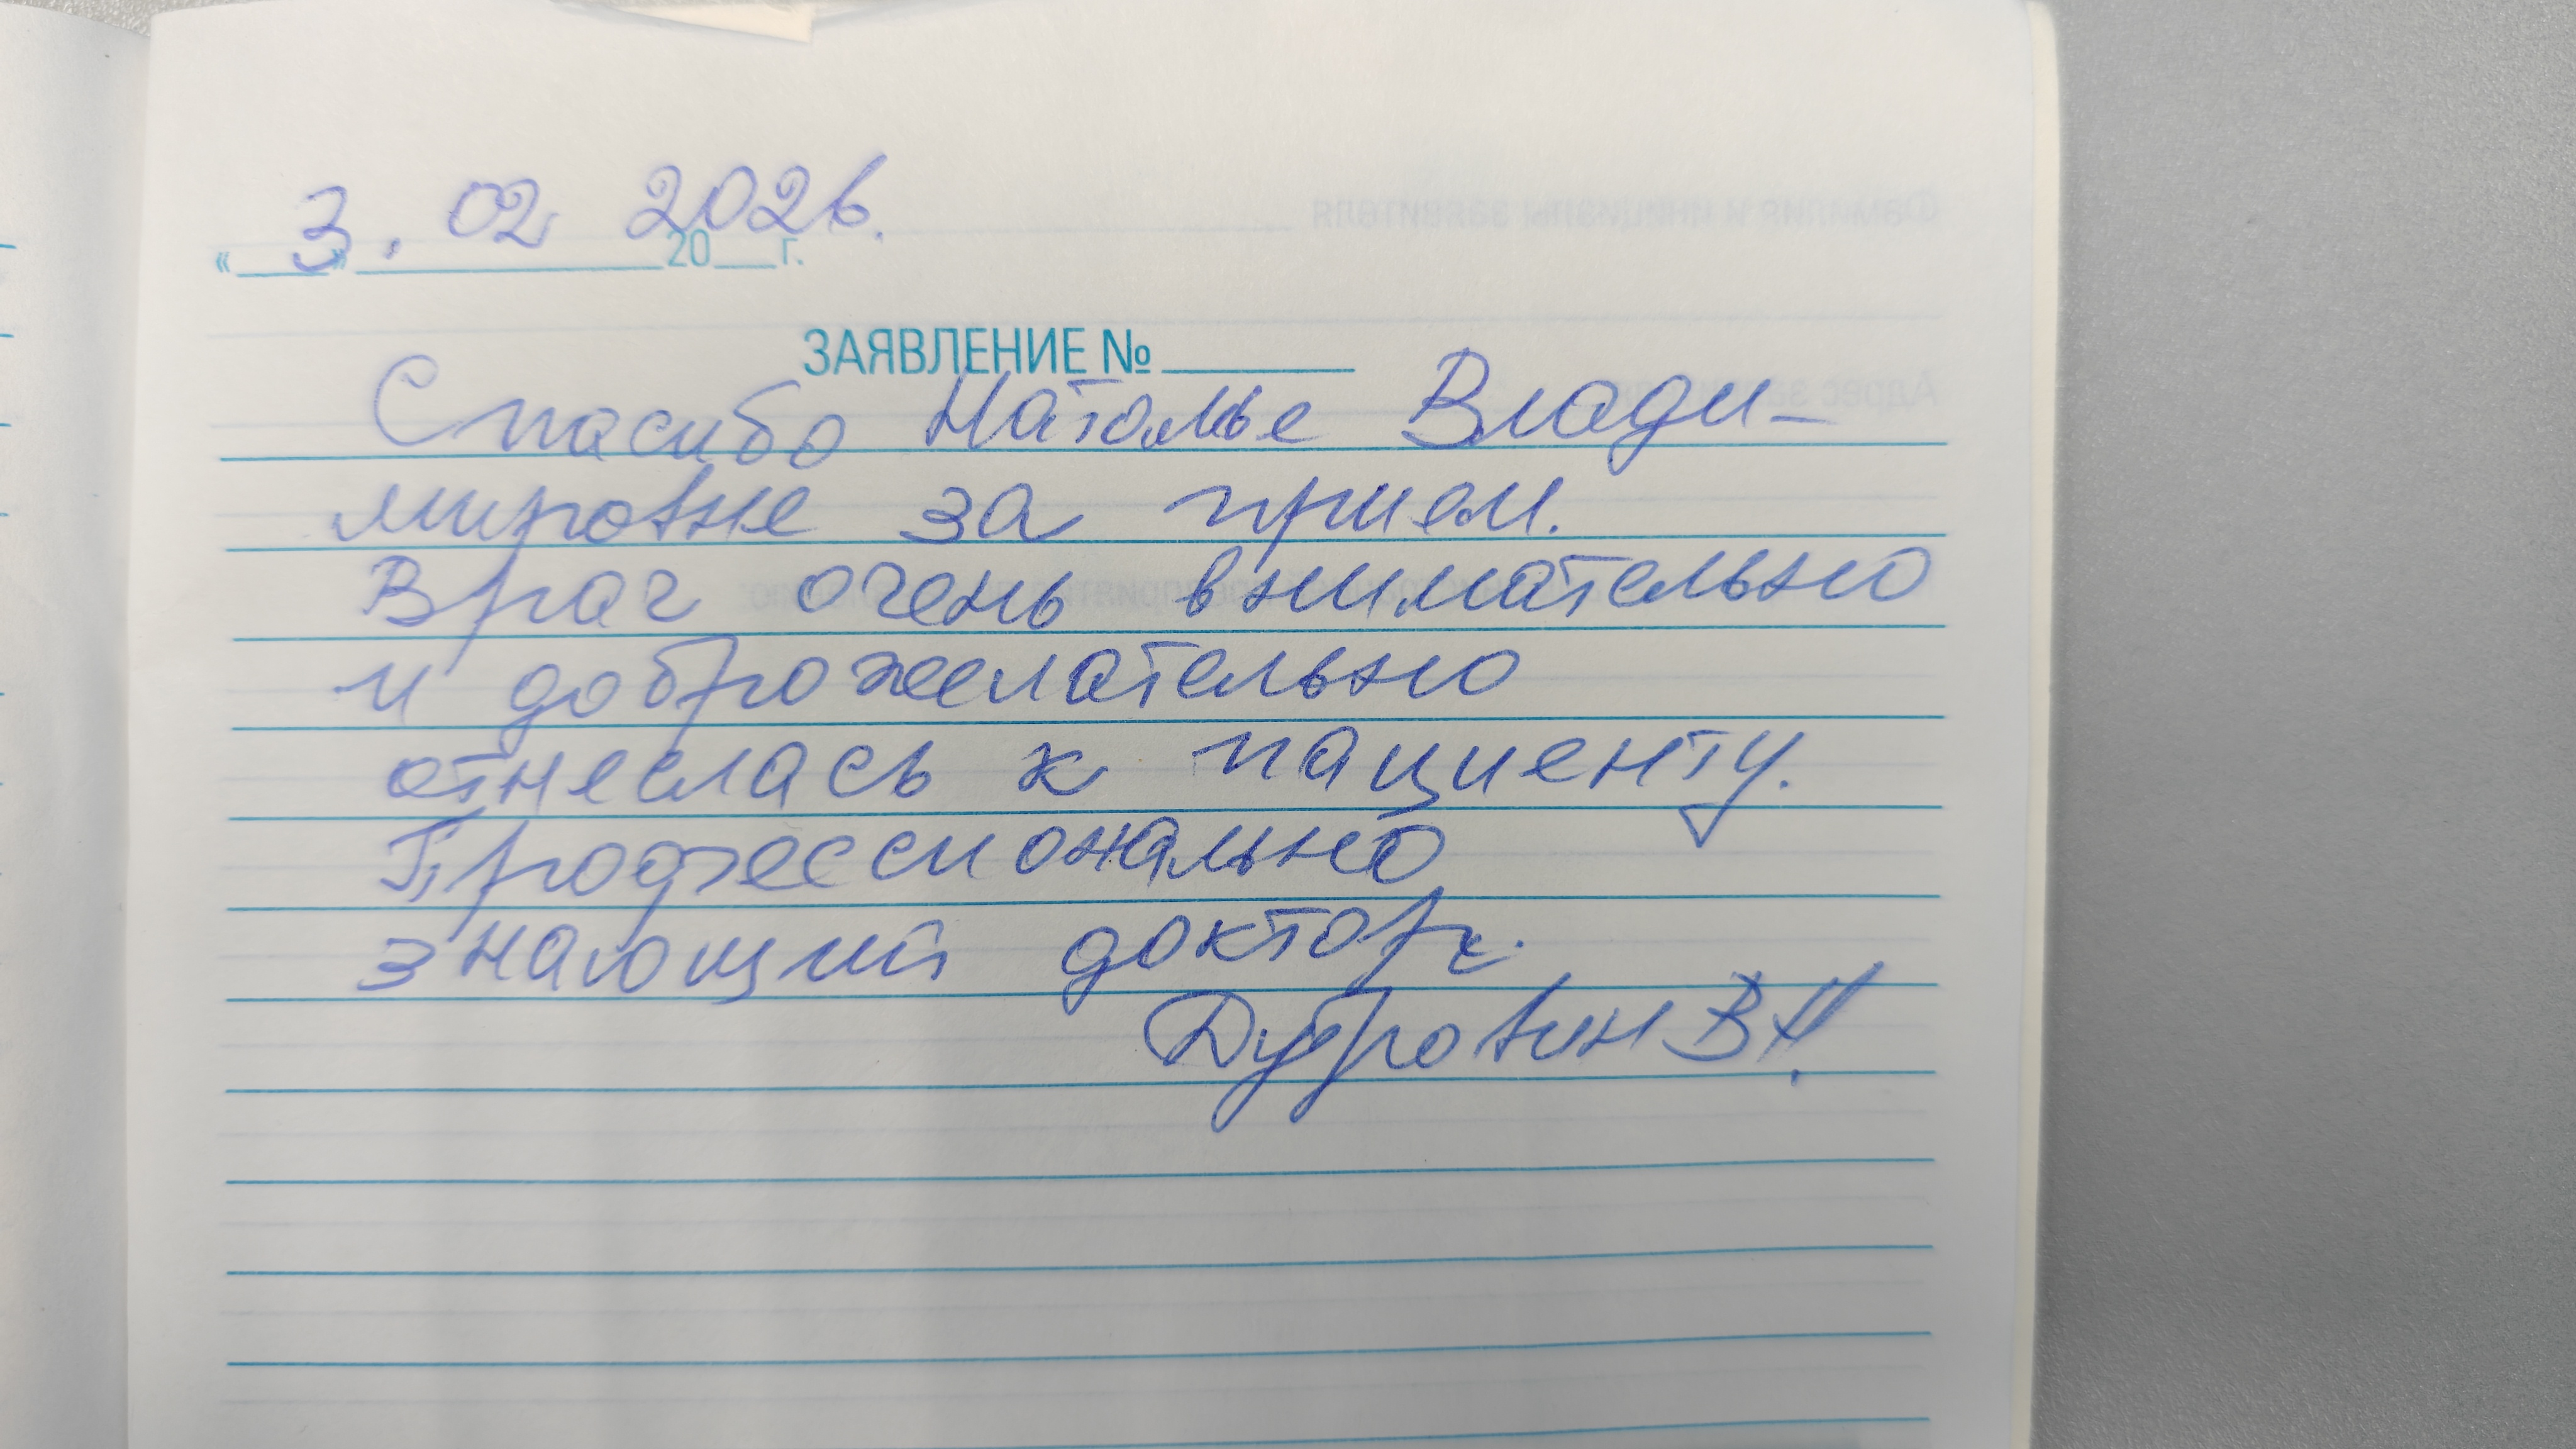 3. 02 2026.
«____»____________20___г.
ЗАЯВЛЕНИЕ №________
Спасибо Наталье Влади-
мировне за прием.
Врач очень внимательно
и доброжелательно
отнеслась к пациенту.
Профессионально
знающий доктор.
Дубровин В